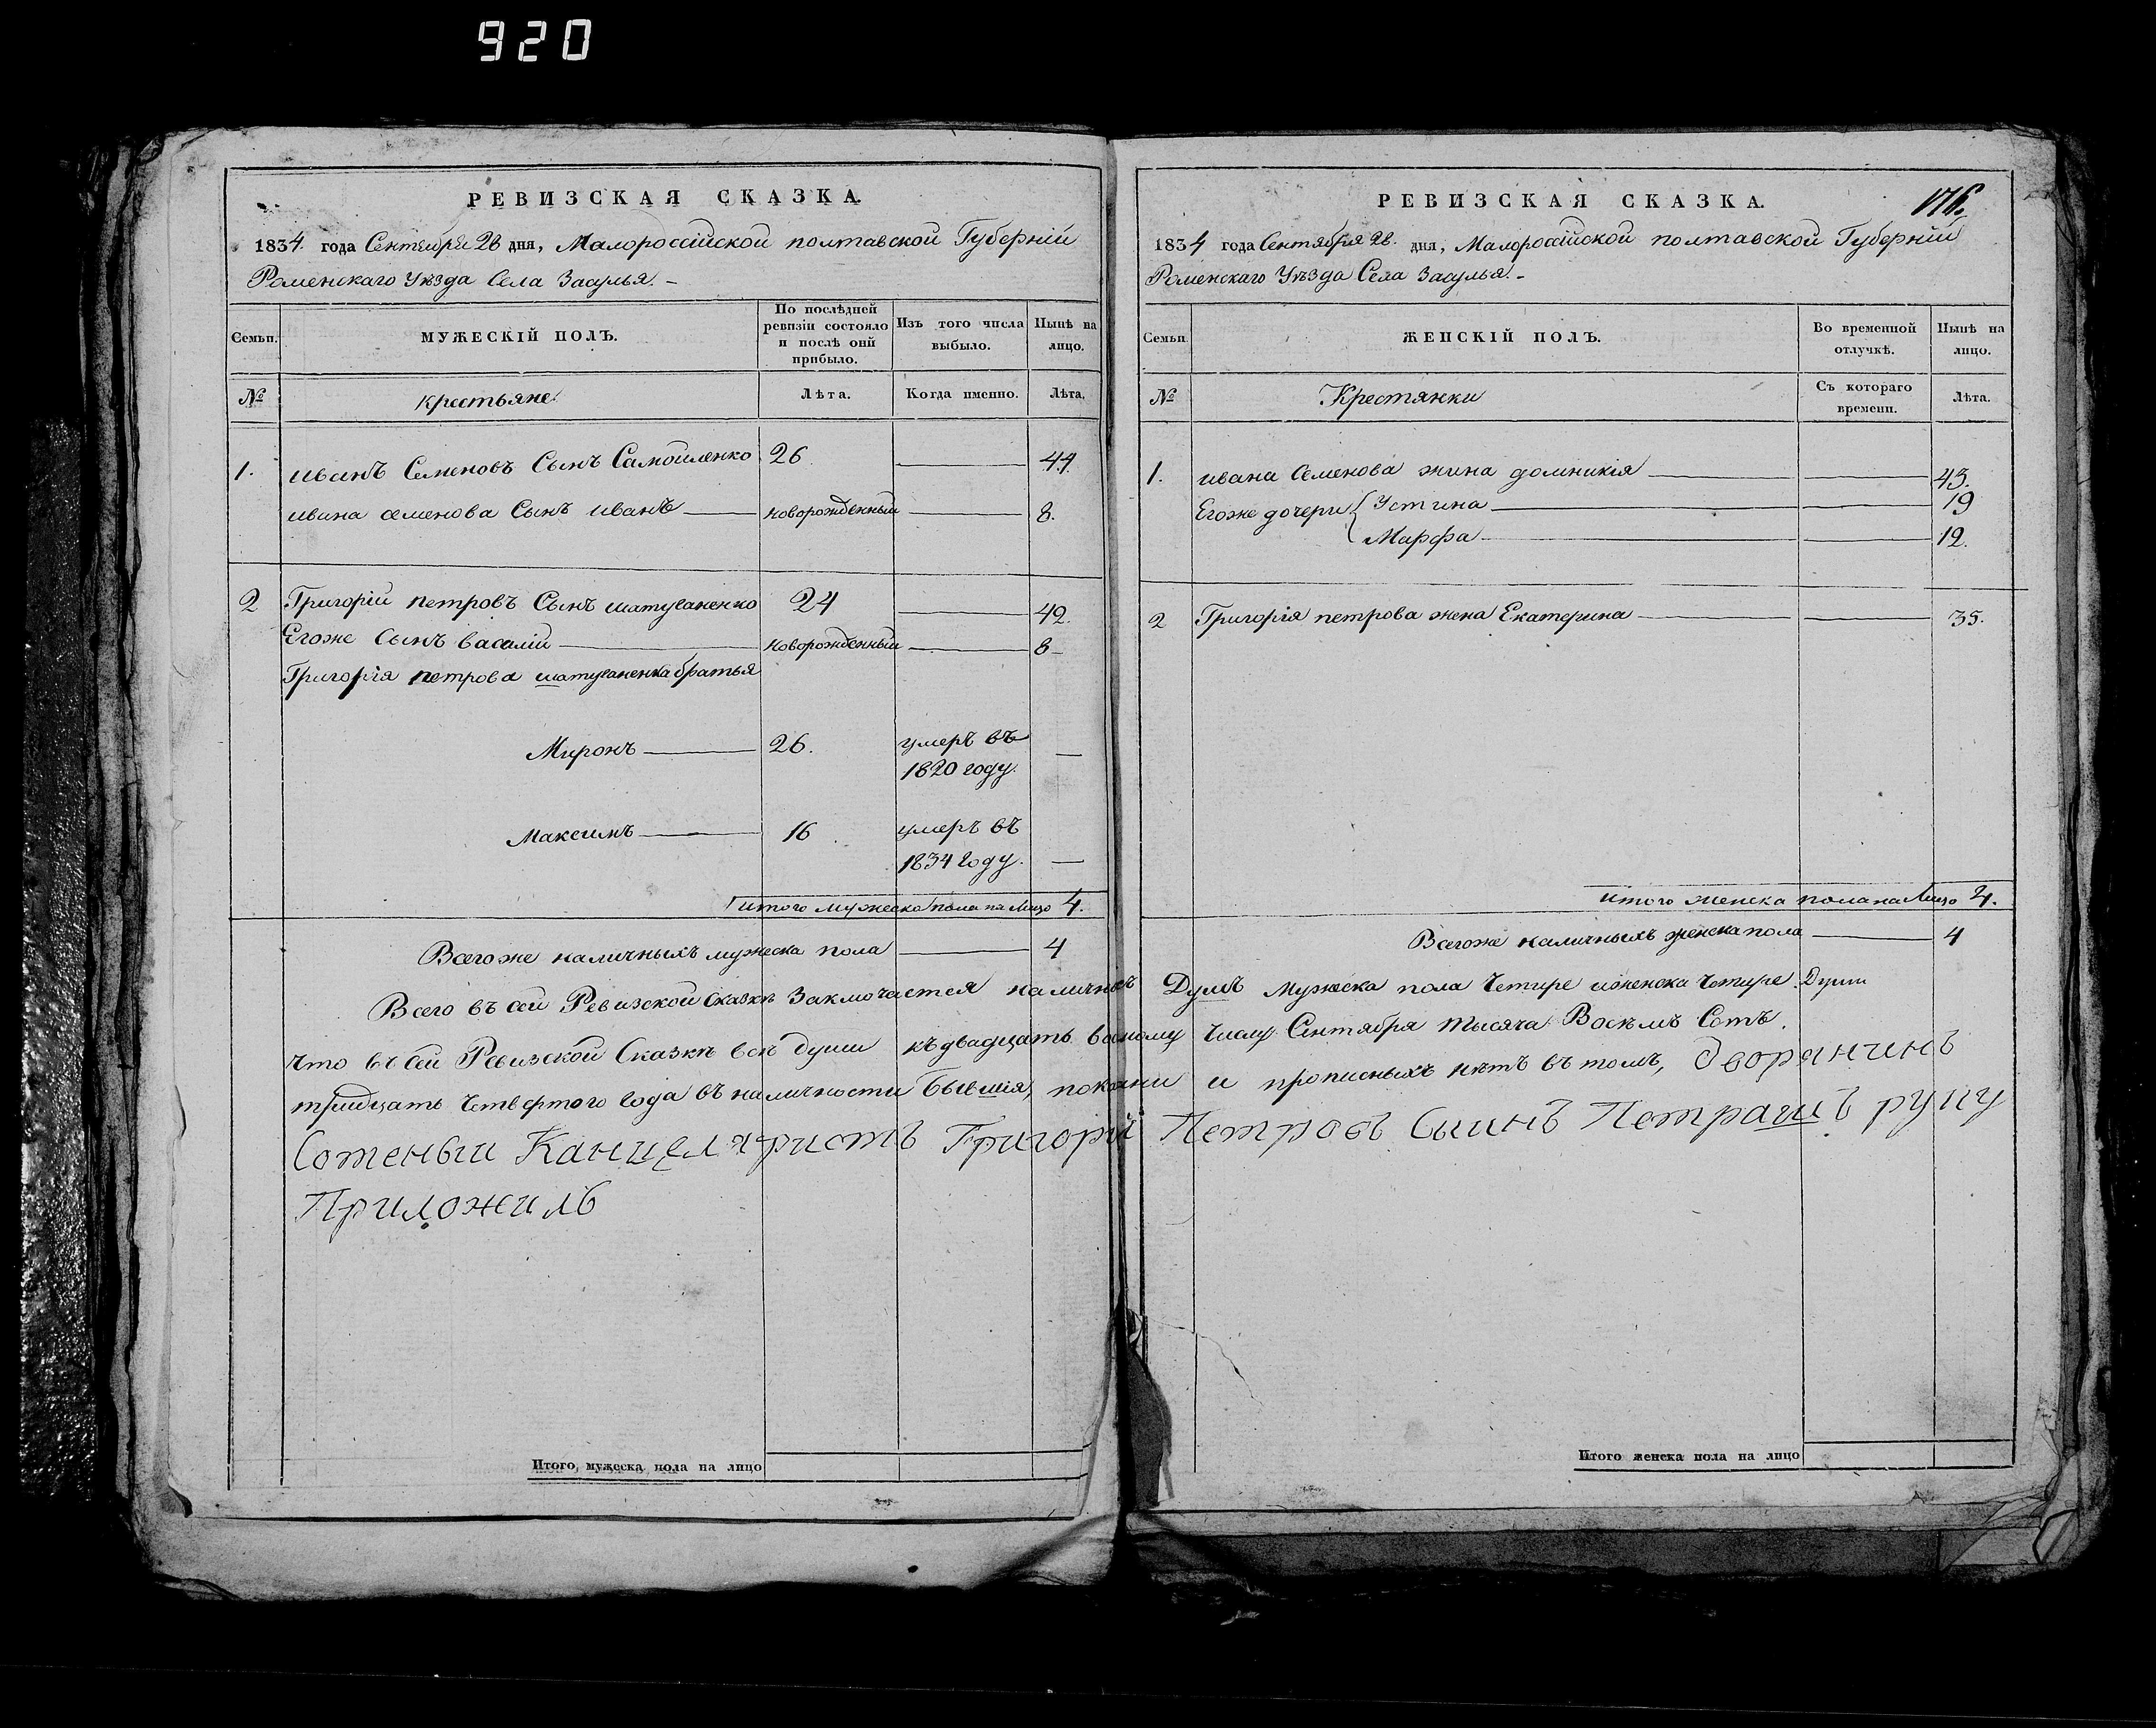 920
РЕВИЗСКАЯ СКАЗКА.
1834. года Сентября 28 дня, Малороссійской полтавской Губерніи
Роменскаго Уѣзда Села Засулья. -
Семьи. МУЖЕСКІЙ ПОЛЪ. По послѣдней ревизіи состояло и послѣ оній прибыло. Изъ того числа выбыло. Нынѣ на лицо.
№ крестьяне. Лѣта. Когда именно. Лѣта.
1. иванъ Семеновъ Сынъ Самойленко 26 44.
ивана семенова Сынъ иванъ новорожденный 8.
2 Григорій петровъ Сынъ 24 42.
Егоже Сынъ василій новорожденный 8
Григорія петрова братья
Миронъ 26. умеръ въ
1820 году.
Максимъ 16 умеръ въ
1834 году.
итого мужеска пола на лицо 4.
Всего же наличныхъ мужеска пола 4
РЕВИЗСКАЯ СКАЗКА. 176.
1834 года Сентября 28. дня, Малоросійской полтавской Губерніи
Роменскаго Уѣзда Села Засулья. -
Семьи. ЖЕНСКІЙ ПОЛЪ. Во временной отлучкѣ. Нынѣ на лицо.
№ Крестянки Съ котораго времени. Лѣта.
1. ивана Семенова жина домникія 43.
Егоже дочери Устина 19
Марфа 12.
2 Григорія петрова жена Екатерина 35.
итого женска пола на Лицо 4.
Всегоже наличныхъ женска пола 4
Всего въ сей Ревизской Сказкѣ Заключается наличныхъ Душъ мужеска пола Четире иженска Четире Души
что въ сей Ревизской Сказкѣ всѣ души къ двадцать восмому числу Сентября тысяча Восѣмъ Сотъ.
тридцать Четвертого года въ наличности Бывшія, показани и прописныхъ нѣтъ въ томъ, дворянинъ
Сотеныи Канцеляристъ Григорій Петровъ Сыинъ Петрашъ руку
Приложилъ
Итого мужеска пола на лицо
Итого женска пола на лицо